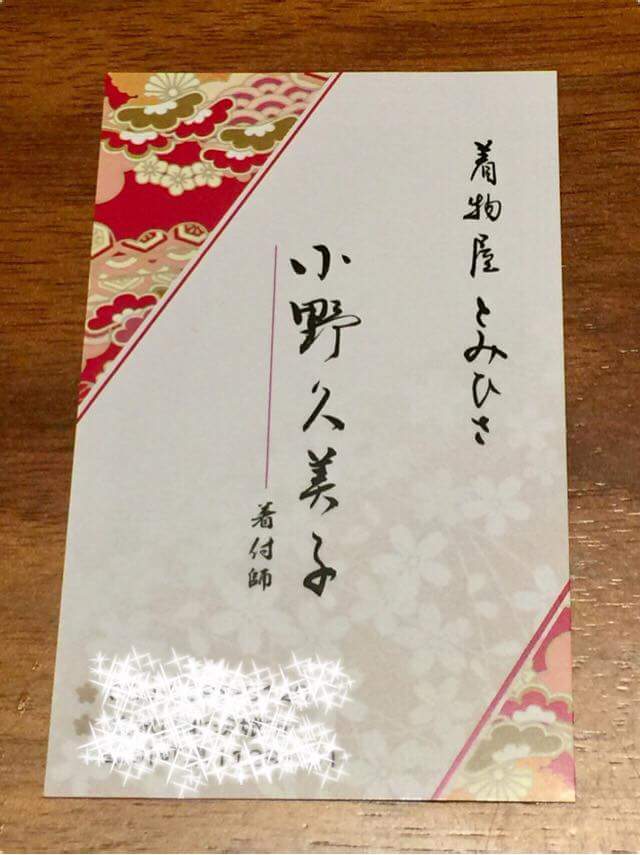 着物屋 とみひさ
小野久美子
着付師